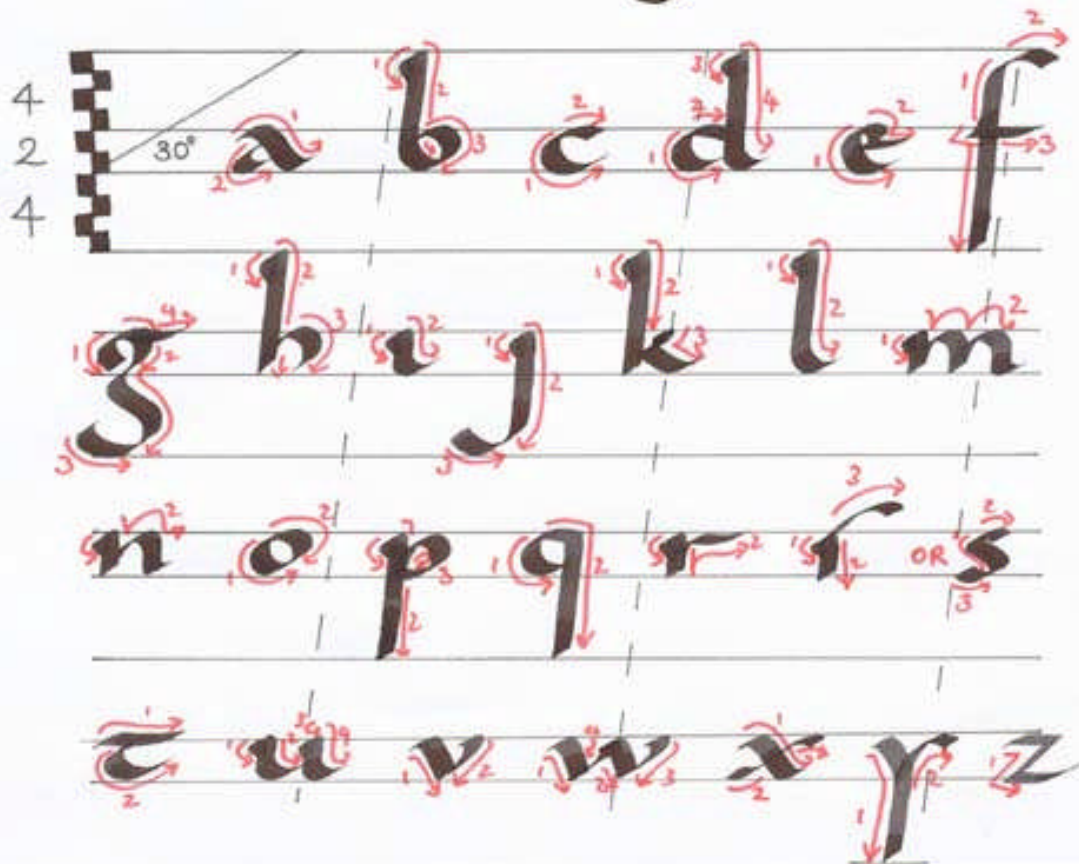 4 2 4 30° a b c d e f
g h i j k l m
n o p q r ſ OR s
t u v w x y z